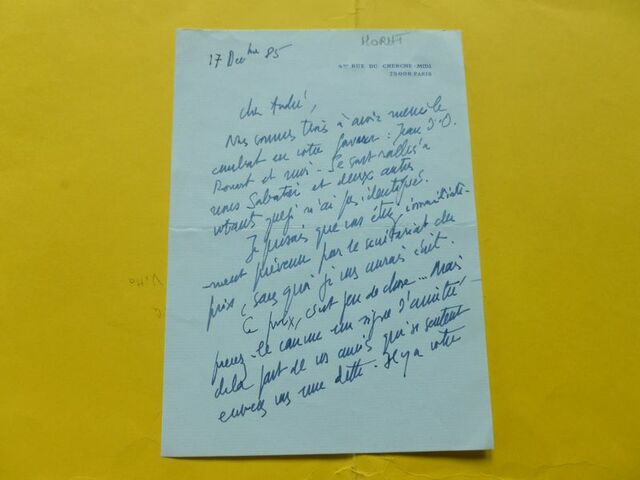 17 Decbre 85
4BIS RUE DU CHERCHE-MIDI
75006 PARIS
cher André,
Nous sommes trois à avoir mené le
combat en votre faveur : Jean d'O.
et moi - Se sont ralliés à
nous Sabatier et deux autres
votants que je n'ai pas identifiés.
Je pensais que vous étiez immédiate-
ment prévenu par le secrétariat du
prix, sans quoi je vous aurais écrit.
Ce prix, c'est peu de chose... Mais
prenez-le comme un signe d'amitié,
de la part de vos amis qui se sentent
envers vous une dette - Il y a votre